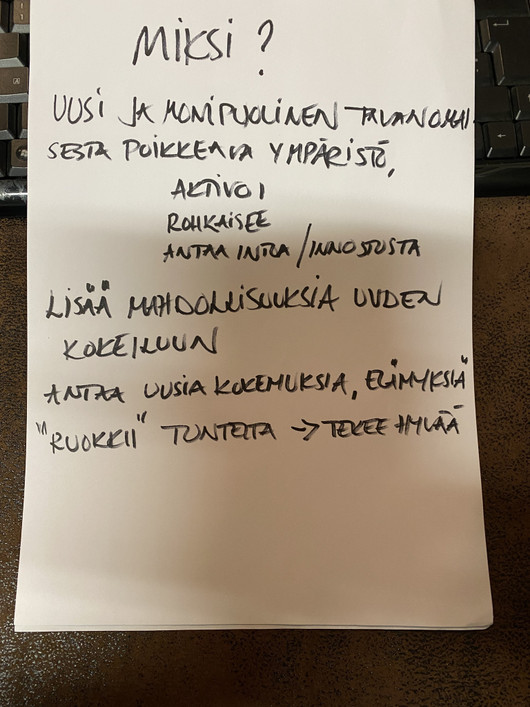 MIKSI?
UUSI JA MONIPUOLINEN TAVANOMAI-
SESTA POIKKEAVA YMPÄRISTÖ,
AKTIVOI
ROHKAISEE
ANTAA INTOA/INNOSTUSTA
LISÄÄ MAHDOLLISUUKSIA UUDEN
KOKEILUUN
ANTAA UUSIA KOKEMUKSIA, ELÄMYKSIÄ
"RUOKKII" TUNTEITA → TEKEE HYVÄÄ